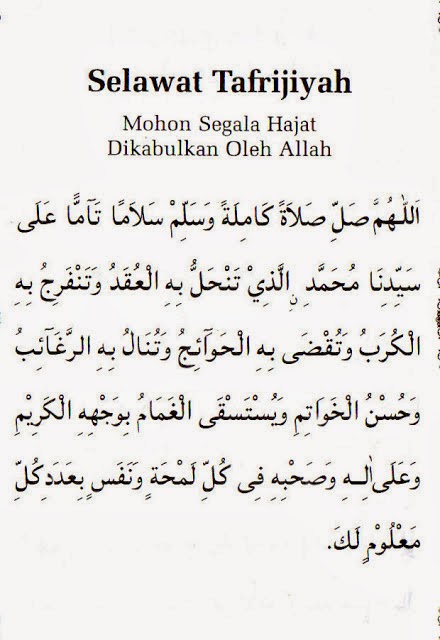 Selawat Tafrijiyah
Mohon Segala Hajat
Dikabulkan Oleh Allah
اَللّٰهُمَّ صَلِّ صَلاَةً كَامِلَةً وَسَلِّمْ سَلاَمًا تَآمًّا عَلَى
سَيِّدِنَا مُحَمَّدِ نِ الَّذِيْ تَنْحَلُّ بِهِ الْعُقَدُ وَتَنْفَرِجُ بِهِ
الْكُرَبُ وَتُقْضَى بِهِ الْحَوَآئِجُ وَتُنَالُ بِهِ الرَّغَآئِبُ
وَحُسْنُ الْخَوَاتِمِ وَيُسْتَسْقَى الْغَمَامُ بِوَجْهِهِ الْكَرِيْمِ
وَعَلَى اٰلِهِ وَصَحْبِهِ فِى كُلِّ لَمْحَةٍ وَنَفَسٍ بِعَدَدِ كُلِّ
مَعْلُوْمٍ لَكَ.